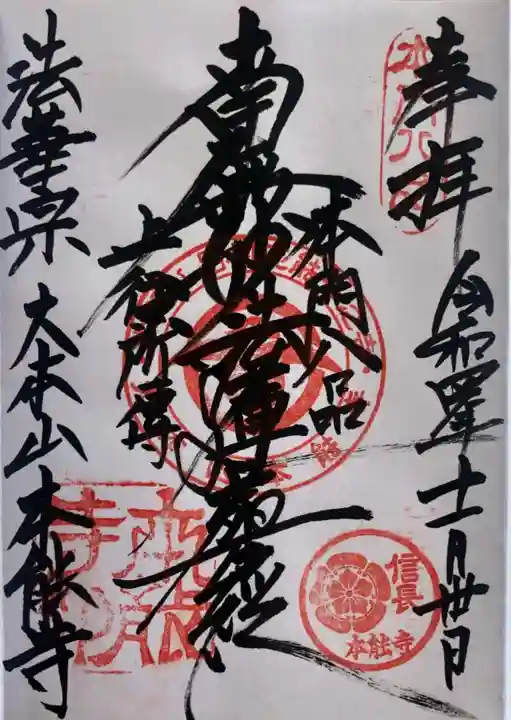 奉拝
令和四年十一月卅日
本門八品
南無妙法蓮華經
上行所傳
法華宗 大本山 本能寺
信長
本能寺